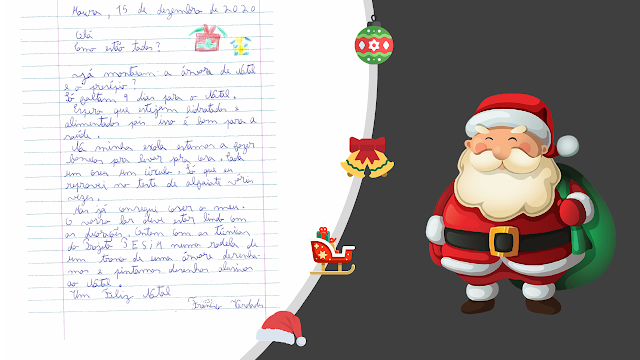 Moura, 15 de dezembro de 2020
Olá
Como estão todos?
Já montaram a árvore de Natal
e o presépio?
Só faltam 9 dias para o Natal.
Espero que estejam hidratados e
alimentados pois isso é bom para a
saúde.
Na minha escola estamos a fazer
bonecos pra levar pra casa. Cada
um cosa um círculo. Só que eu
reprovei no teste de algaiate várias
vezes.
Mas já consegui coser o meu.
O vosso lar deve estar lindo com
as decorações. Ontem com as técnicas
do Projeto 3ESIM numa rodela de
um tronco de uma árvore desenha-
mos e pintamos desenhos alusivos
ao Natal.
Um Feliz Natal